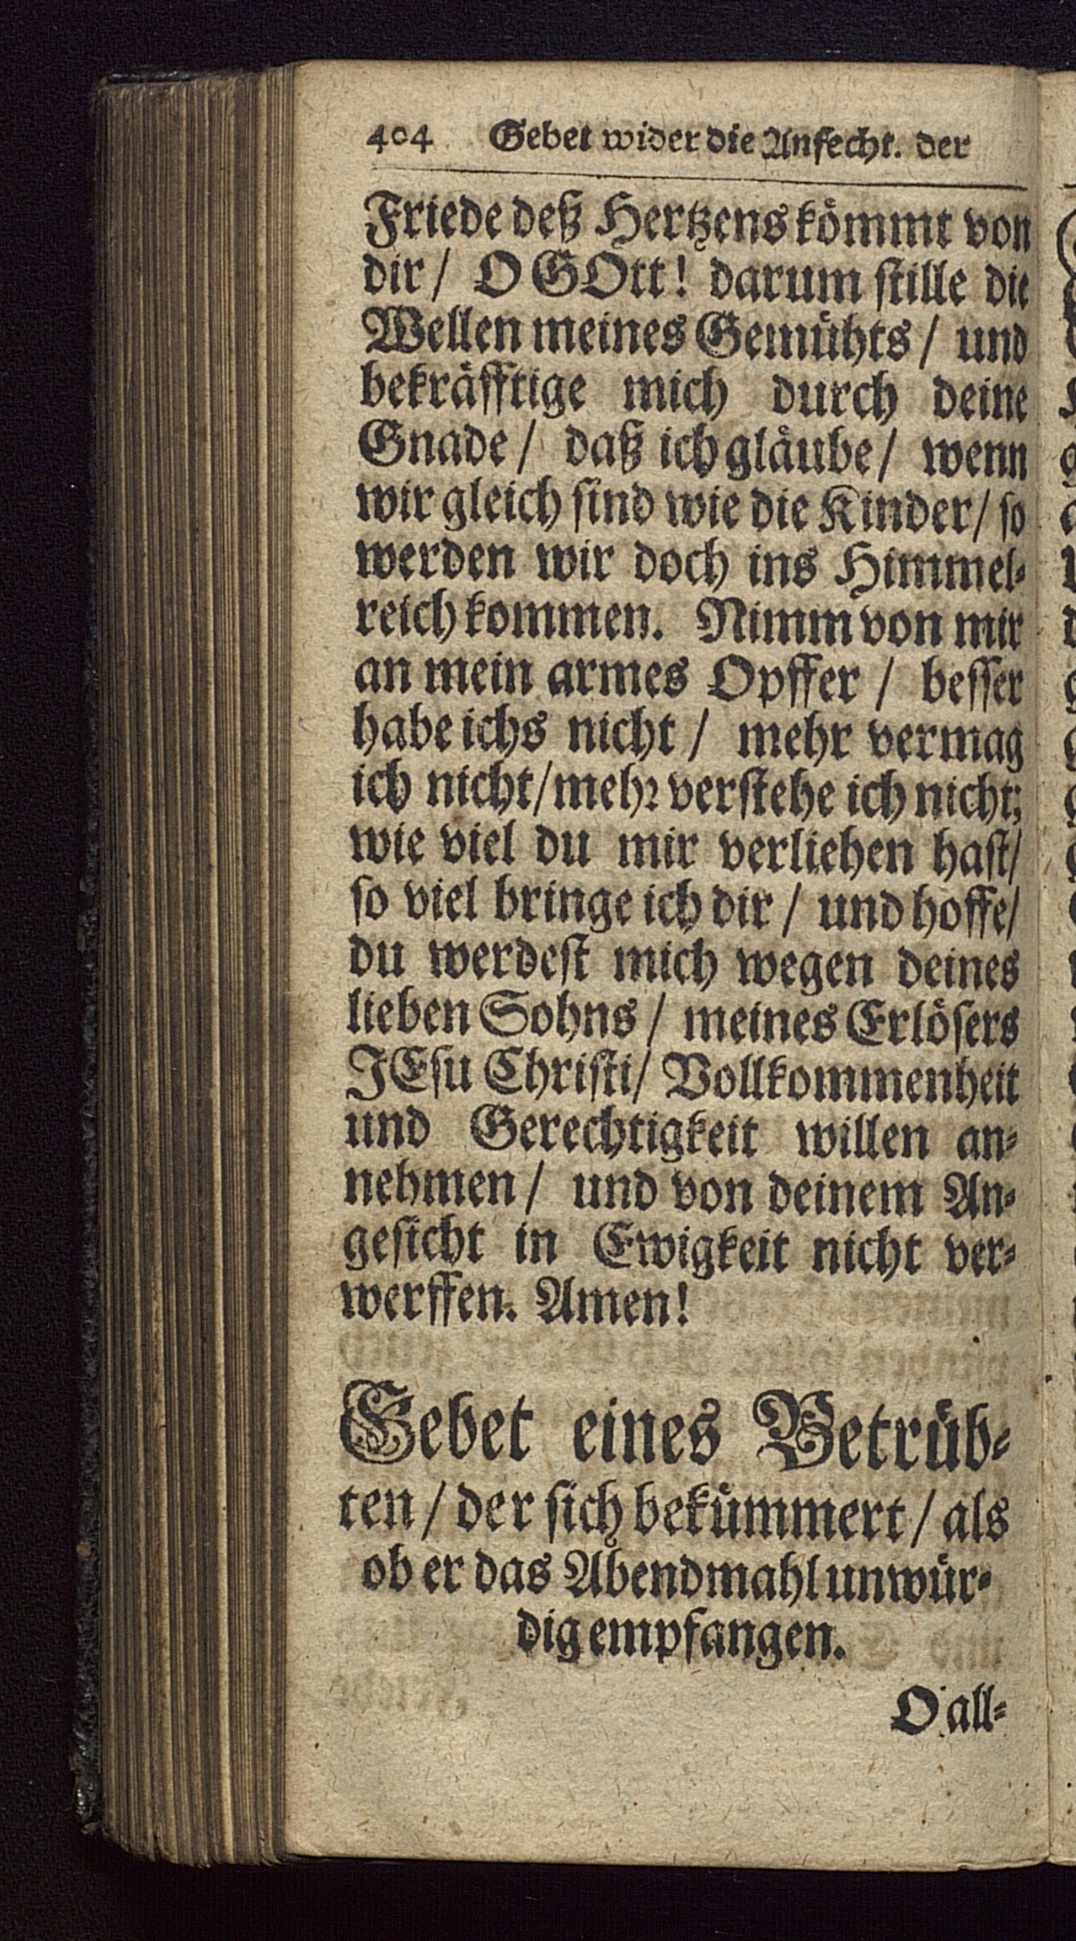 404 Gebet wider die Anfecht. der
Friede deß Hertzens kömmt von
dir/ O GOtt! darum stille die
Wellen meines Gemühts/ und
bekräfftige mich durch deine
Gnade/ daß ich gläube/ wenn
wir gleich sind wie die Kinder/ so
werden wir doch ins Himmel-
reich kommen. Nimm von mir
an mein armes Opffer/ besser
habe ichs nicht/ mehr vermag
ich nicht/ mehr verstehe ich nicht;
wie viel du mir verliehen hast/
so viel bringe ich dir/ und hoffe/
du werdest mich wegen deines
lieben Sohns/ meines Erlösers
JEsu Christi/ Vollkommenheit
und Gerechtigkeit willen an-
nehmen/ und von deinem An-
gesicht in Ewigkeit nicht ver-
werffen. Amen!
Gebet eines Betrüb-
ten/ der sich bekümmert/ als
ob er das Abendmahl unwür-
dig empfangen.
O all-